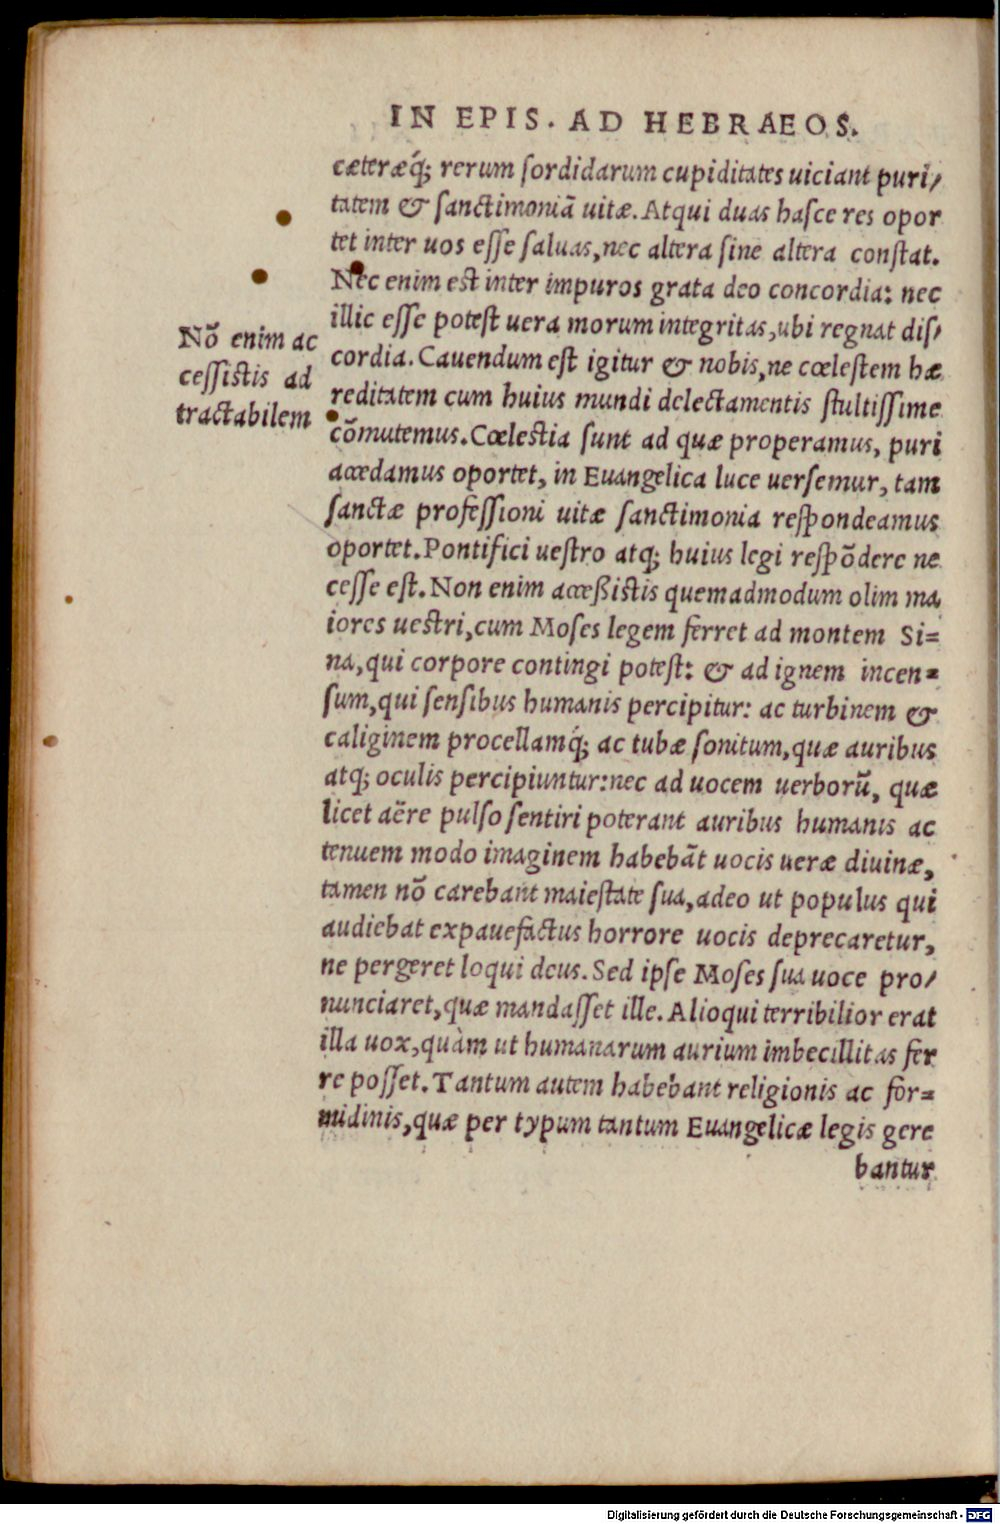 IN EPIS. AD HEBRAEOS.
cæteræq́; rerum ſordidarum cupiditates uiciant puri/
tatem & ſanctimoniã uitæ. Atqui duas haſce res opor
tet inter uos eſſe ſaluas, nec altera ſine altera conſtat.
Nec enim est inter impuros grata deo concordia: nec
illic eſſe potest uera morum integritas, ubi regnat diſ/
cordia. Cauendum est igitur & nobis, ne cœleſtem hæ
reditatem cum huius mundi delectamentis ſtultiſſime
cõmutemus. Cœlestia ſunt ad quæ properamus, puri
accedamus oportet, in Euangelica luce uerſemur, tam
ſanctæ profeſſioni uitæ ſanctimonia reſpondeamus
oportet. Pontifici ueſtro atq; huius legi reſpõdere ne
ceſſe eſt. Non enim acceßistis quemadmodum olim ma
iores uestri, cum Moſes legem ferret ad montem Si=
na, qui corpore contingi potest: & ad ignem incen=
ſum, qui ſenſibus humanis percipitur: ac turbinem &
caliginem procellamq́; ac tubæ ſonitum, quæ auribus
atq; oculis percipiuntur: nec ad uocem uerborũ, quæ
licet aëre pulſo ſentiri poterant auribus humanis ac
tenuem modo imaginem habebãt uocis ueræ diuinæ,
tamen nõ carebant maieſtate ſua, adeo ut populus qui
audiebat expauefactus horrore uocis deprecaretur,
ne pergeret loqui deus. Sed ipſe Moſes ſua uoce pro/
nunciaret, quæ mandaſſet ille. Alioqui terribilior erat
illa uox, quàm ut humanarum aurium imbecillitas fer
re poſſet. Tantum autem habebant religionis ac for=
midinis, quæ per typum tantum Euangelicæ legis gere
bantur
Nõ enim ac
ceſſistis ad
tractabilem
Digitalisierung gefördert durch die Deutsche Forschungsgemeinschaft - DFG